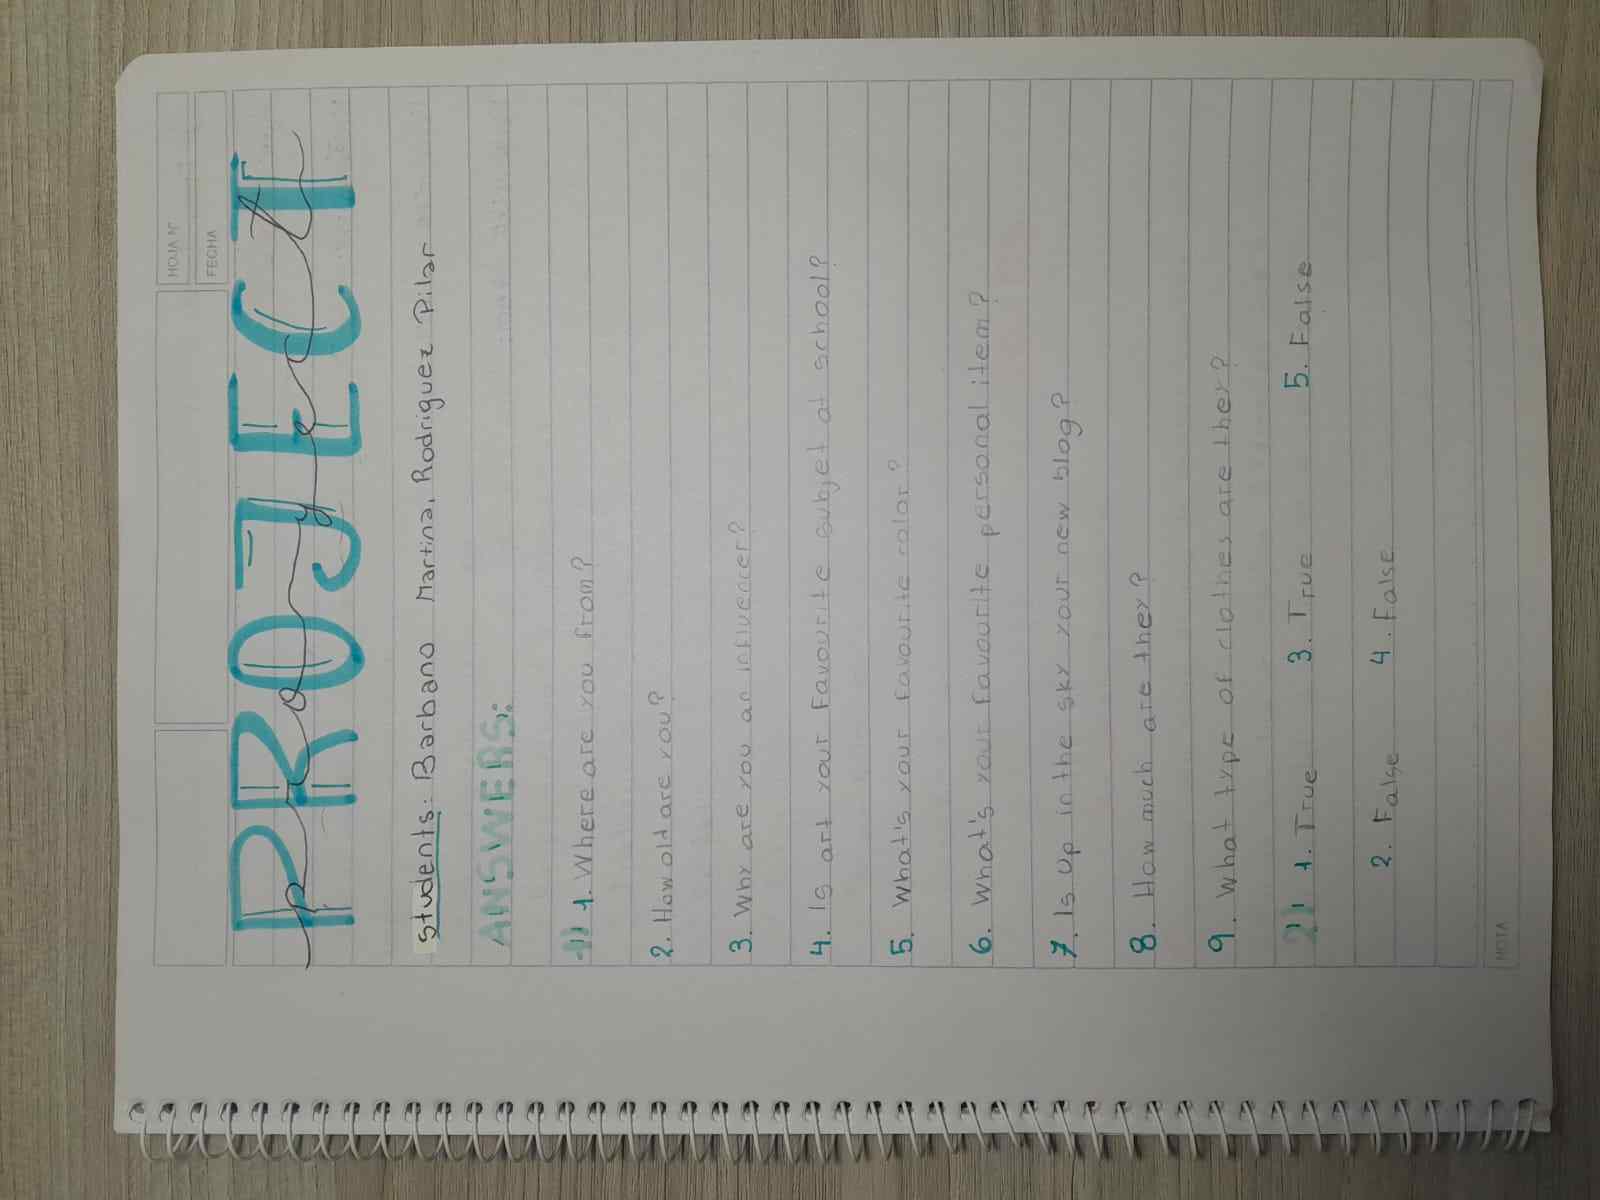 HOJA N°
FECHA
PROJECT
project
Students: Barbano Martina, Rodriguez Pilar
ANSWERS:
1) 1. Where are you from?
2. How old are you?
3. Why are you an influencer?
4. Is art your favourite subjet at school?
5. What's your favourite color?
6. What's your favourite personal item?
7. Is Up in the sky your new blog?
8. How much are they?
9. What type of clothes are they?
2) 1. True 3. True 5. False
2. False 4. False
NOTA